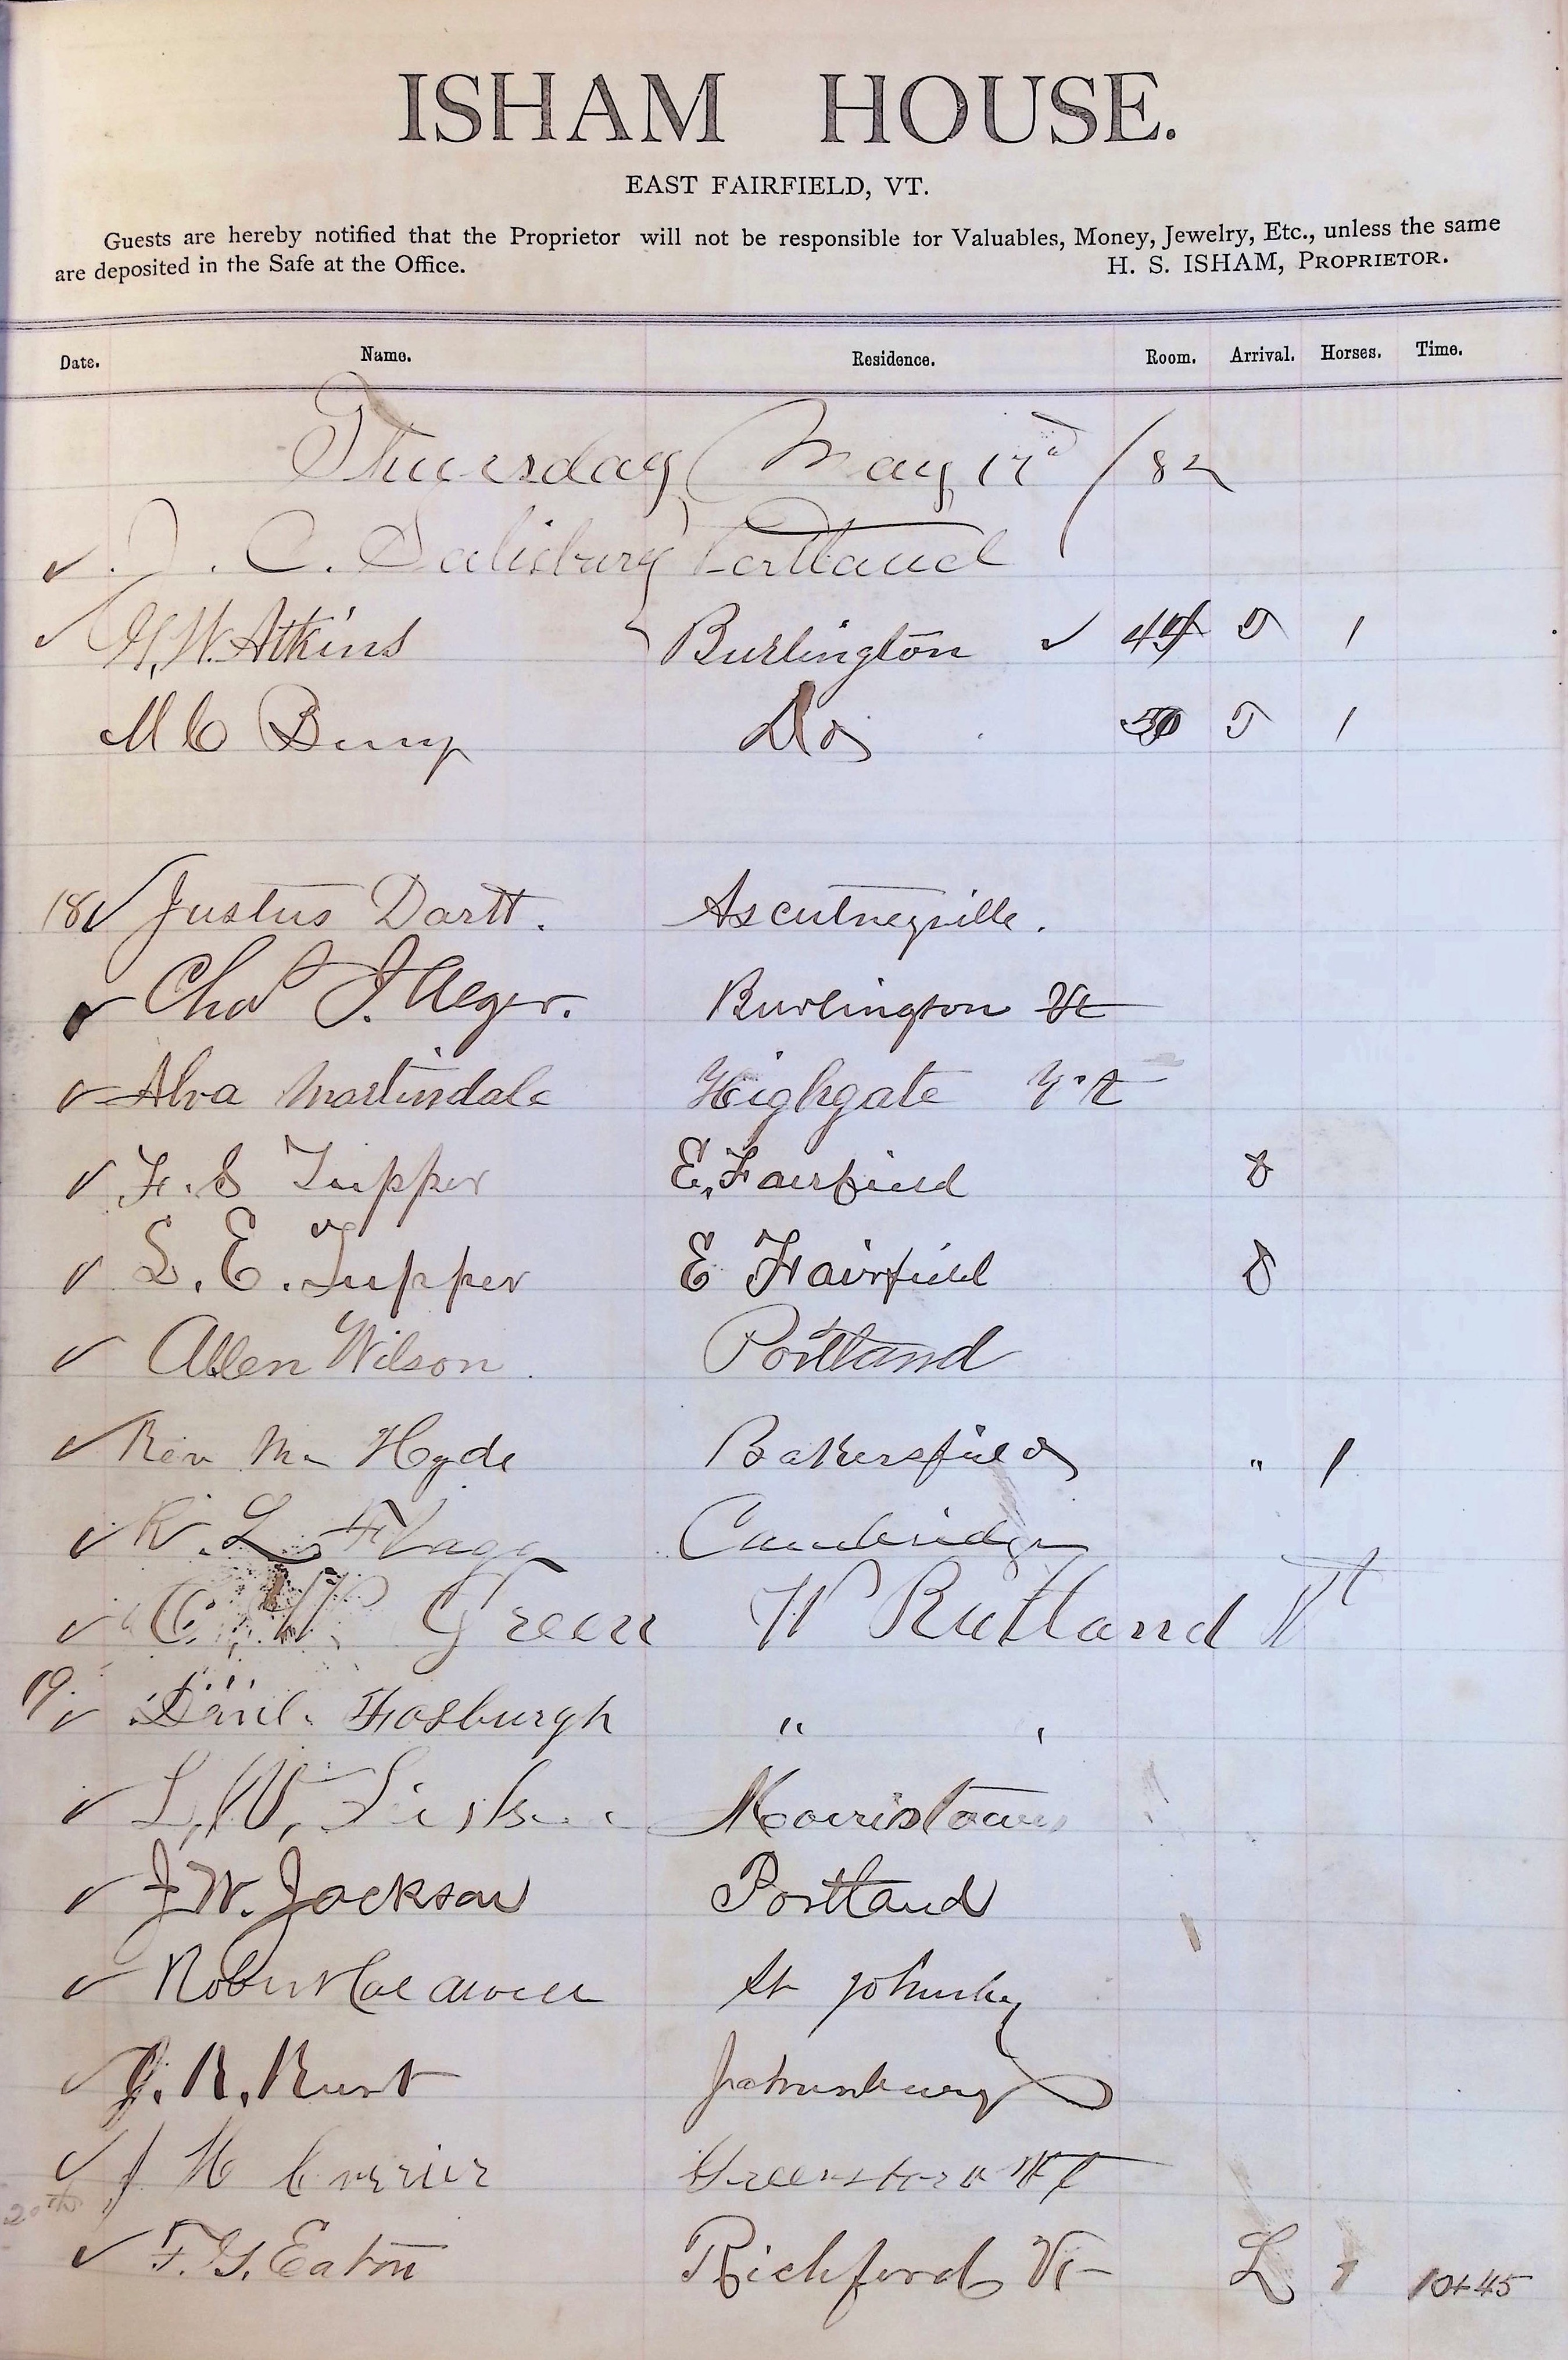 ISHAM HOUSE.
EAST FAIRFIELD, VT.
Guests are hereby notified that the Proprietor will not be responsible for Valuables, Money, Jewelry, Etc., unless the same
are deposited in the Safe at the Office. H. S. ISHAM, PROPRIETOR.
Date. Name. Residence. Room. Arrival. Horses. Time.
Thursday May /82
J. C. Salisbury Portland
W. Atkins Burlington 1
M C Do 1
18 Justus Dartt. Ascutneyville.
Chas J. Alger. Burlington Vt
Alva Martindale Highgate Vt
F. S Tupper E. Fairfield
L. E. Tupper E Fairfield
Allen Wilson Portland
Rev Mr Hyde Bakersfield " 1
R. L. Flagg Cambridge
C. W. Green W Rutland Vt
19 Danl. Fosburgh " "
L. W. Morristown
J W. Jackson Portland
Robert St Johnsby
J. R. Johnsbury
J H Currier Greensboro Vt
20th
F. G. Eaton Richford Vt L 1 10+45